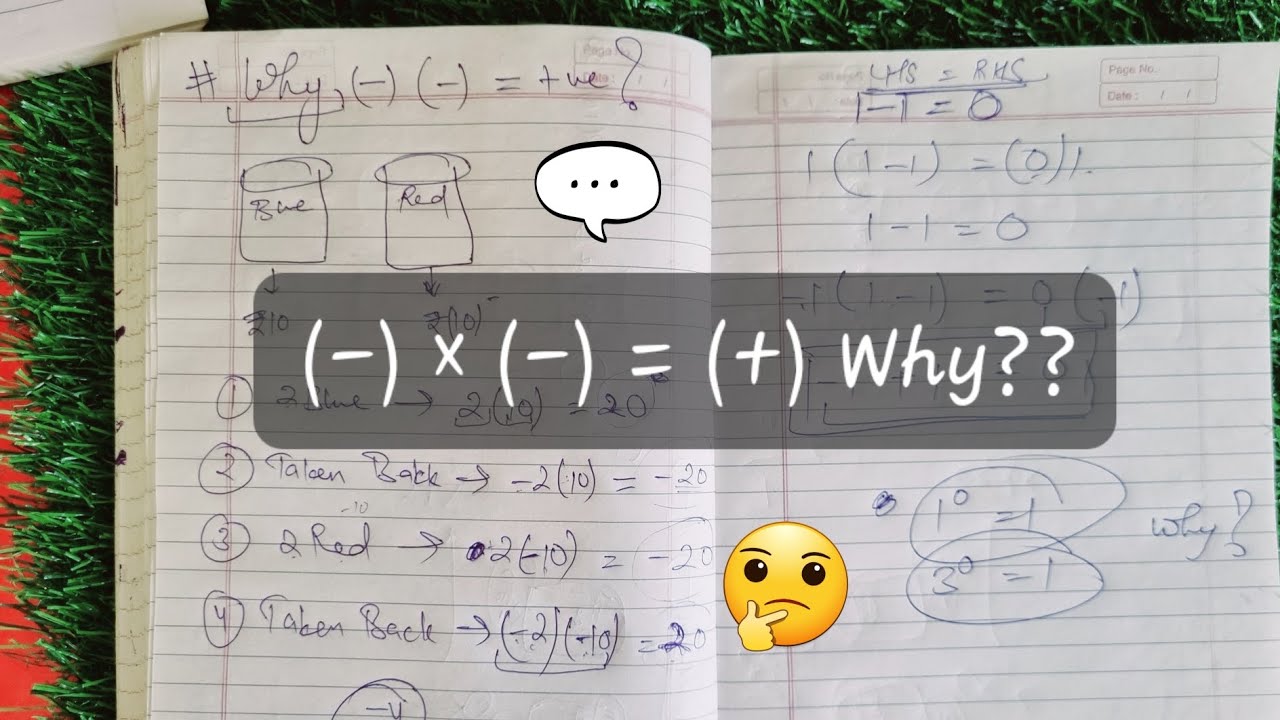 # Why, (-) (-) = +ve ?
Blue
Red
210
2(10)
(-) × (-) = (+) Why??
① 2 Blue → 2(10) = 20
② Taken Back → -2(10) = -20
-10
③ 2 Red → 2(-10) = -20
④ Taken Back → (-2)(-10) = 20
LHS = RHS
1-1 = 0
1(1-1) = (0)1
1-1 = 0
-1(1-1) = 0(-1)
1⁰ = 1
3⁰ = 1
Why?
Page No.
Date : / /
Page
Date : / /